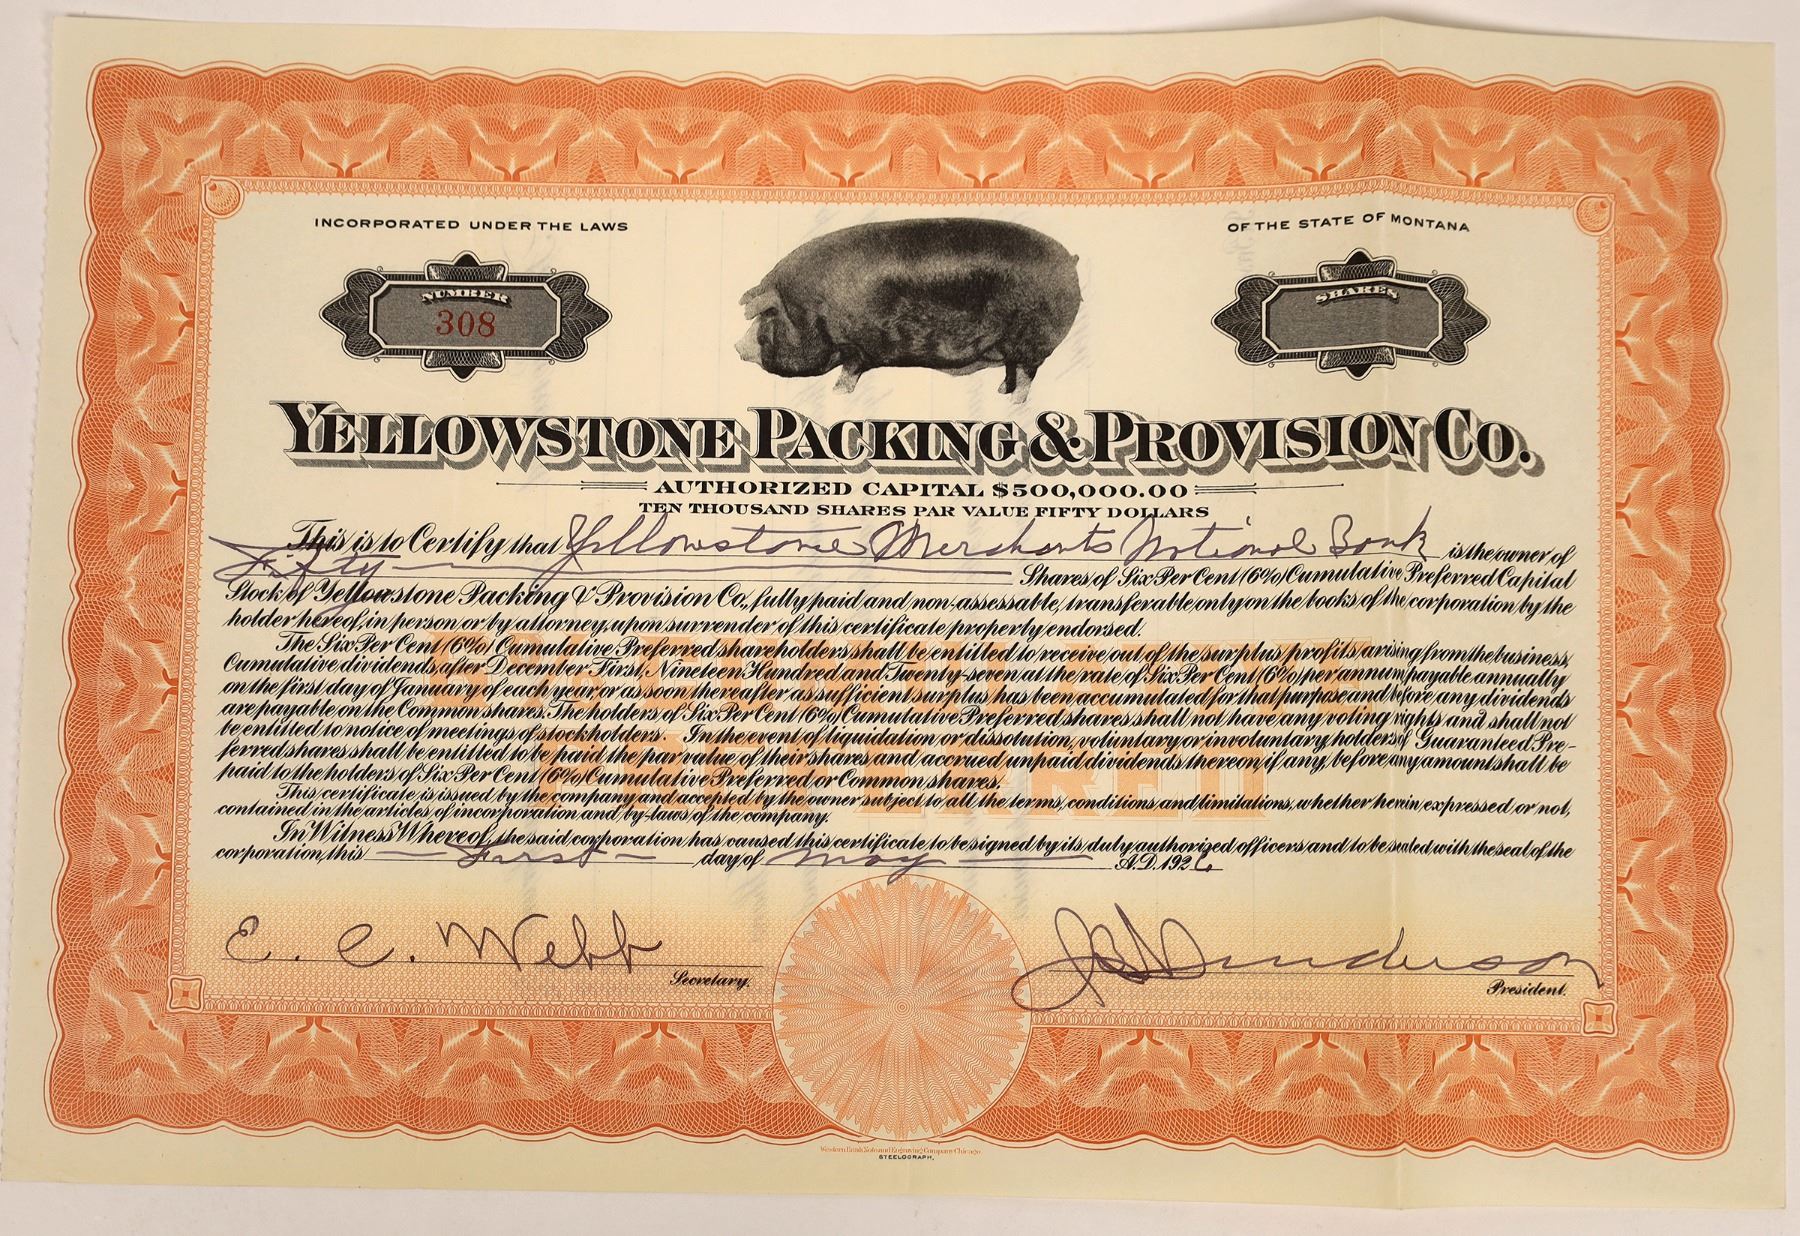 INCORPORATED UNDER THE LAWS
OF THE STATE OF MONTANA
NUMBER
308
SHARES
YELLOWSTONE PACKING & PROVISION CO.
AUTHORIZED CAPITAL $500,000.00
TEN THOUSAND SHARES PAR VALUE FIFTY DOLLARS
This is to Certify that Yellowstone Merchants National Bank is the owner of
Fifty Shares of Six Per Cent (6%) Cumulative Preferred Capital
Stock of Yellowstone Packing & Provision Co., fully paid and non-assessable, transferable only on the books of the corporation by the
holder hereof, in person or by attorney, upon surrender of this certificate properly endorsed.
The Six Per Cent (6%) Cumulative Preferred shareholders shall be entitled to receive out of the surplus profits arising from the business,
Cumulative dividends, after December First, Nineteen Hundred and Twenty-seven at the rate of Six Per Cent (6%) per annum payable annually
on the first day of January of each year, or as soon thereafter as sufficient surplus has been accumulated for that purpose and before any dividends
are payable on the Common shares. The holders of Six Per Cent (6%) Cumulative Preferred shares shall not have any voting rights and shall not
be entitled to notice of meetings of stockholders. In the event of liquidation or dissolution, voluntary or involuntary, holders of Guaranteed Pre-
ferred shares shall be entitled to be paid the par value of their shares and accrued unpaid dividends thereon, if any, before any amount shall be
paid to the holders of Six Per Cent (6%) Cumulative Preferred or Common shares.
This certificate is issued by the company and accepted by the owner subject to all the terms, conditions and limitations, whether herein expressed or not,
contained in the articles of incorporation and by-laws of the company.
In Witness Whereof, the said corporation has caused this certificate to be signed by its duly authorized officers and to be sealed with the seal of the
corporation, this First day of May A.D. 192
E. C. Webb
Secretary.
President.
Western Bank Note and Engraving Company Chicago
STEELOGRAPH.